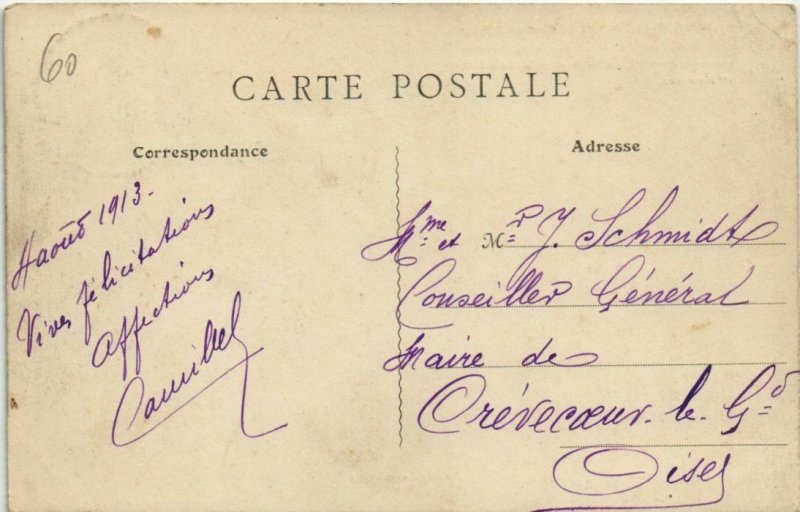 60
CARTE POSTALE
Correspondance
4 août 1913.
Vives félicitations
Affections
Adresse
Mme et Mr J. Schmidt
Conseiller Général
Maire de
Crèvecœur-le-Gd
Oise